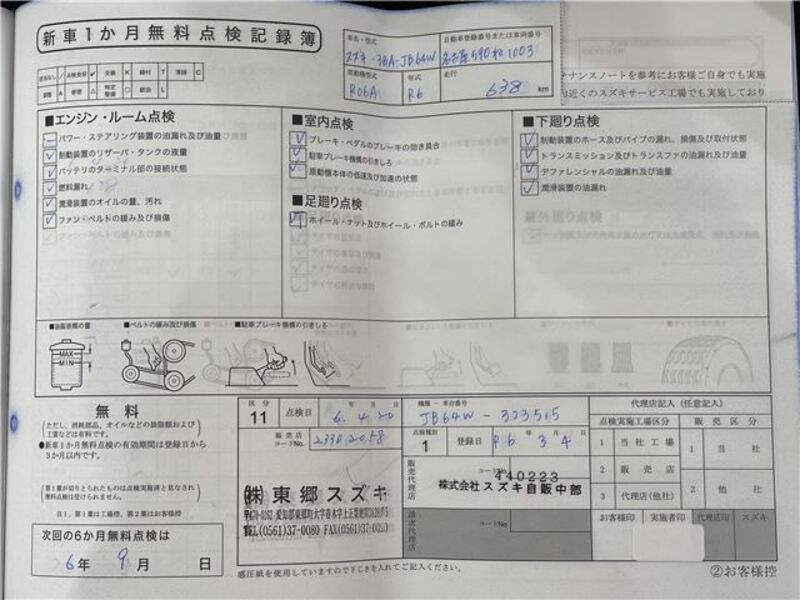 新車1か月無料点検記録簿
車名・型式
スズキ・3BA-JB64W
自動車登録番号または車両番号
名古屋590 1003
原動機型式
R06A
年式
R6
走行
638 km
点検良好 ✓ 交換 × 締付 T 清掃 C
調整 A 修理 △ 特定整備 ○ 給油 L
ナンスノートを参考にお客様ご自身でも実施
近くのスズキサービス工場でも実施しており
■エンジン・ルーム点検
パワー・ステアリング装置の油漏れ及び油量
制動装置のリザーバ・タンクの液量
バッテリのターミナル部の接続状態
燃料漏れ
潤滑装置のオイルの量、汚れ
ファン・ベルトの緩み及び損傷
■室内点検
ブレーキ・ペダルのブレーキの効き具合
駐車ブレーキ機構の引きしろ
原動機本体の低速及び加速の状態
■足廻り点検
ホイール・ナット及びホイール・ボルトの緩み
■下廻り点検
制動装置のホース及びパイプの漏れ、損傷及び取付状態
トランスミッション及びトランスファの油漏れ及び油量
デファレンシャルの油漏れ及び油量
潤滑装置の油漏れ
■油脂液類の量
■ベルトの緩み及び損傷
■駐車ブレーキ機構の引きしろ
MAX
MIN
無料
(ただし、消耗部品、オイルなどの油脂類および工賃などは有料です。)
●新車1か月無料点検の有効期間は登録日から
3か月以内です。
(第1葉が切りとられたものは点検実施済と見なされ
無料点検は受けられません。)
注1.第1葉は工場控、第2葉はお客様控
次回の6か月無料点検は
6年 9月 日
区分
11
点検日
年 月 日
6.4.20
販売店
コードNo.
2330 2058
㈱東郷スズキ
TEL(0561)37-0080
機種-車台番号
JB64W-323515
点検種別
1
登録日
R6年 3月 4日
販売代理店
コードNo.
440223
株式会社スズキ自販中部
請求代理店
コードNo.
代理店記入(任意記入)
点検実施工場区分
販売区分
1 当社工場
2 販売店
3 代理店(他社)
1 当社
2 他社
お客様印
実施者印
代理店印
スズキ
感圧紙を使用していますので下じきを入れてご記入ください。
②お客様控